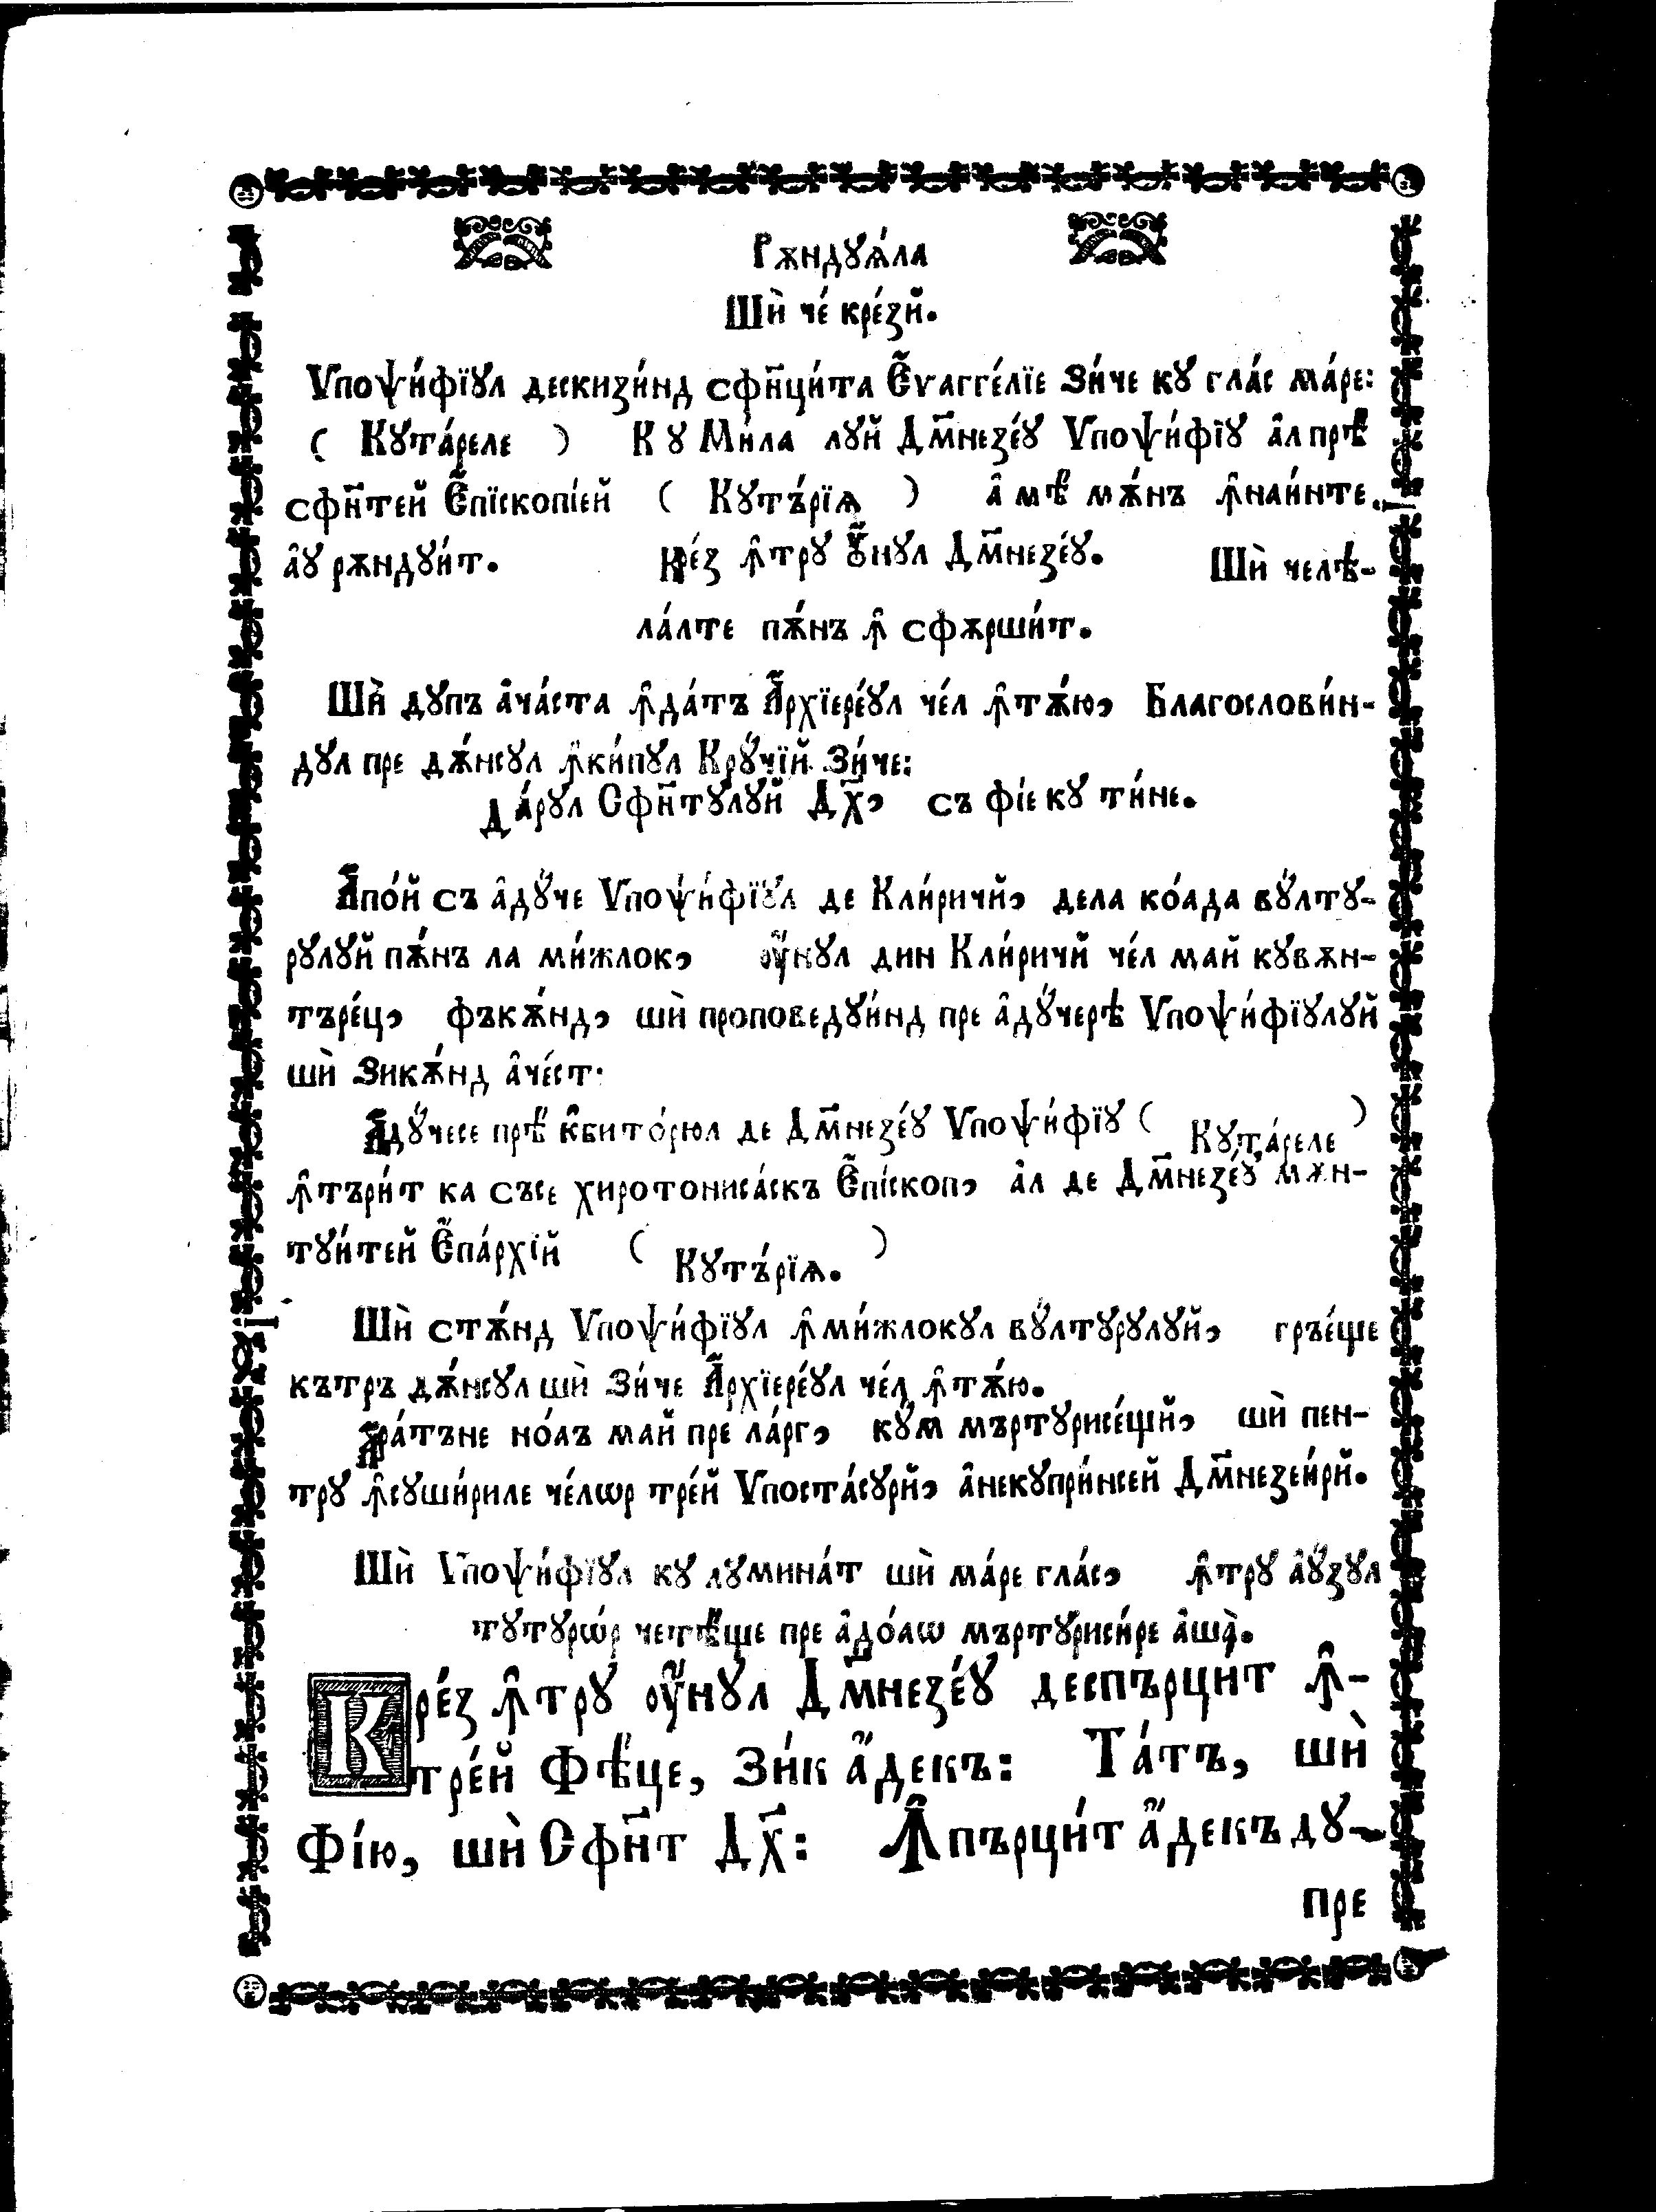 Рѫндꙋѧ́ла
Шѝ че́ кре́зй.
Ѵпоѱи́фїꙋл дескизи́нд сфн҃ци́та Є҆ѵаггелїе Зи́че кꙋ гла́с ма́ре:
( Кꙋта́реле ) Кꙋ Ми́ла лꙋй Дм҃незе́ꙋ Ѵпоѱи́фїꙋ а҆л прѣ
сфн҃тей Є҆пїскопі́ей ( Кꙋтъ́рїѧ ) а҆ мѣ мѫ́нъ ꙟ҆наи́нте.
а҆ꙋ рѫндꙋи́т. Кре́з ꙟ҆трꙋ ᲂу҆́нꙋл Дм҃незе́ꙋ. Шѝ челѣ-
ла́лте пѫ́нъ ꙟ҆ сфѫрши́т.
Шѝ дꙋпъ а҆ча́ста ꙟ҆да́тъ А҆рхїере́ꙋл че́л ꙟ҆тѫ́ю, Благослови́н-
дꙋл пре дѫ́нсꙋл ꙟ҆ки́пꙋл Крꙋ́чїй Зи́че:
Да́рꙋл Сфн҃тꙋлꙋй Дх҃, съ фі́е кꙋ ти́не.
А҆по́й съ а҆дꙋ́че Ѵпоѱи́фїꙋл де Кли́ричй, дела ко́ада вꙋ́лтꙋ-
рꙋлꙋй пѫ́нъ ла ми́жлок, ᲂу҆́нꙋл дин Кли́ричй че́л май кꙋвѫн-
търе́ц, фъкѫ́нд, шѝ проповедꙋи́нд пре а҆дꙋ́черѣ Ѵпоѱи́фїꙋлꙋй
шѝ Зикѫ́нд а҆че́ст.
А҆дꙋ́чесе прѣ кꙋвито́рюл де Дм҃незе́ꙋ Ѵпоѱи́фїꙋ ( Кꙋта́реле )
ꙟ҆търи́т ка съсе хиротониса́скъ Є҆пі́скоп, а҆л де Дм҃незе́ꙋ мѫн-
тꙋи́тей Є҆па́рхїй ( Кꙋтъ́рїѧ. )
Шѝ стѫ́нд Ѵпоѱи́фїꙋл ꙟ҆ми́жлокꙋл вꙋ́лтꙋрꙋлꙋй, гръе́ще
кътръ дѫ́нсꙋл шѝ Зи́че А҆рхїере́ꙋл че́л ꙟ҆тѫ́ю.
А҆ра́тъне но́аъ май пре ла́рг, кꙋ́м мъртꙋрисе́щй, шѝ пен-
трꙋ ꙟ҆сꙋши́риле че́лѡр тре́й Ѵпоста́сꙋрй, а҆некꙋпри́нсей Дм҃незеи́рй.
Шѝ Ѵпоѱи́фїꙋл кꙋ лꙋмина́т шѝ ма́ре гла́с, ꙟ҆трꙋ а҆ꙋ́зꙋл
тꙋтꙋрѡ́р четѣ́ще пре а҆до́аѡ мъртꙋриси́ре а҆ша̀.
Кре́з ꙟ҆трꙋ ᲂу҆́нꙋл Дм҃незе́ꙋ деспърцит ꙟ҆-
тре́й Фѣ́це, Зи́к а҆́декъ: Та́тъ, шѝ
Фі́ю, шѝ Сфн҃т Дх҃: Ꙟ҆пърци́т а҆́декъ дꙋ-
пре